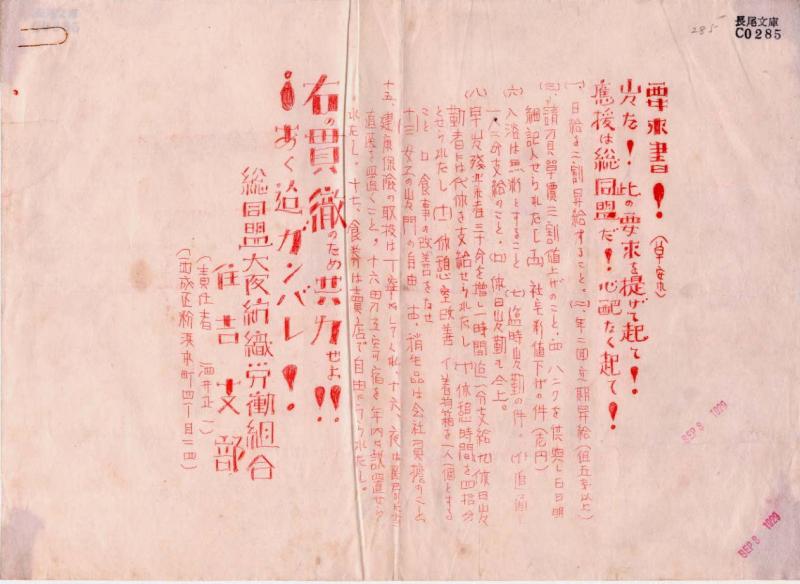 長尾文庫
C0285
285
要求書！（草案）
出た！此の要求を提げて起て！
應援は総同盟だ！心配なく起て！
一、日給を二割昇給すること、(二)、年二回定期昇給（但五銭以上）
(三)、請負單價三割値上げのこと、(四)ハンクを供與し日日明
細記入せられたし (五)、社宅料値下げの件
(六)入浴は無料とすること (七)臨時出勤の件
支給のこと (ロ)休日出勤
(八)早出残業者三十分を増し一時間迄一分支給 (九)休日出
勤者には代休を支給せられたし (十)休憩時間を四拾分
とせられたし (十一)休憩室改善 イ着物箱を一人一個とする
こと ロ食事の改善をなせ
十三、女工の出門の自由 衛生品は会社の負擔のこと
十五、健康保険の取扱は丁寧にしてくれ、十六、夜は
直医を置くこと。男工寄宿を年内に設置せら
れたし。十七、食券は賣店で自由にうられたし。
右の貫徹のため共力せよ！！
！あく迄ガンバレ！
総同盟大夜紡織労働組合
住吉支部
（責任者 酒井正一）
（西成区粉浜本町四丁目二四）
SEP 8 1929
SEP 8 1929